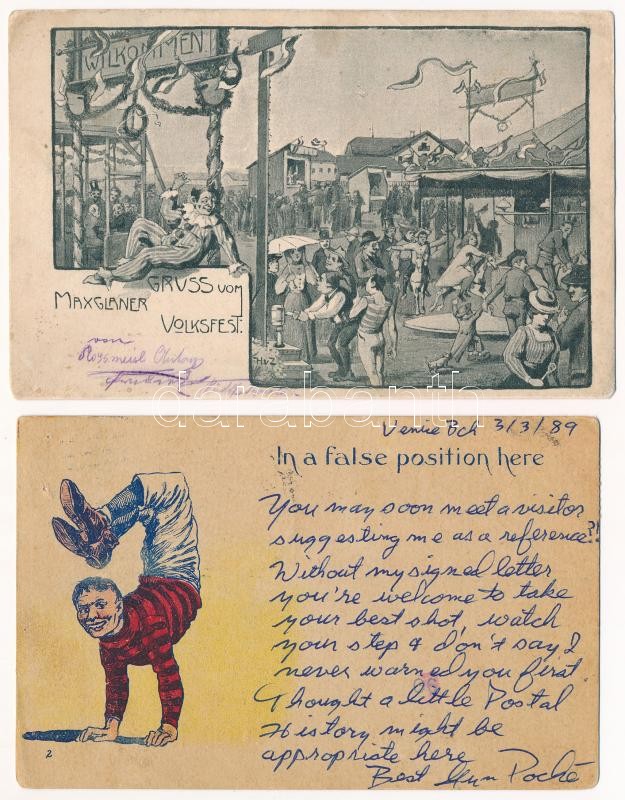 WILKOMMEN.
GRUSS VOM
MAXGLANER
VOLKSFEST.
von
darabanth
Venice Bch 3/3/89
In a false position here
You may soon meet a visitor
suggesting me as a reference?!
Without my signed letter
you're welcome to take
your best shot, watch
your step & don't say I
never warned you first.
Thought a little Postal
History might be
appropriate here
Best Poché
2